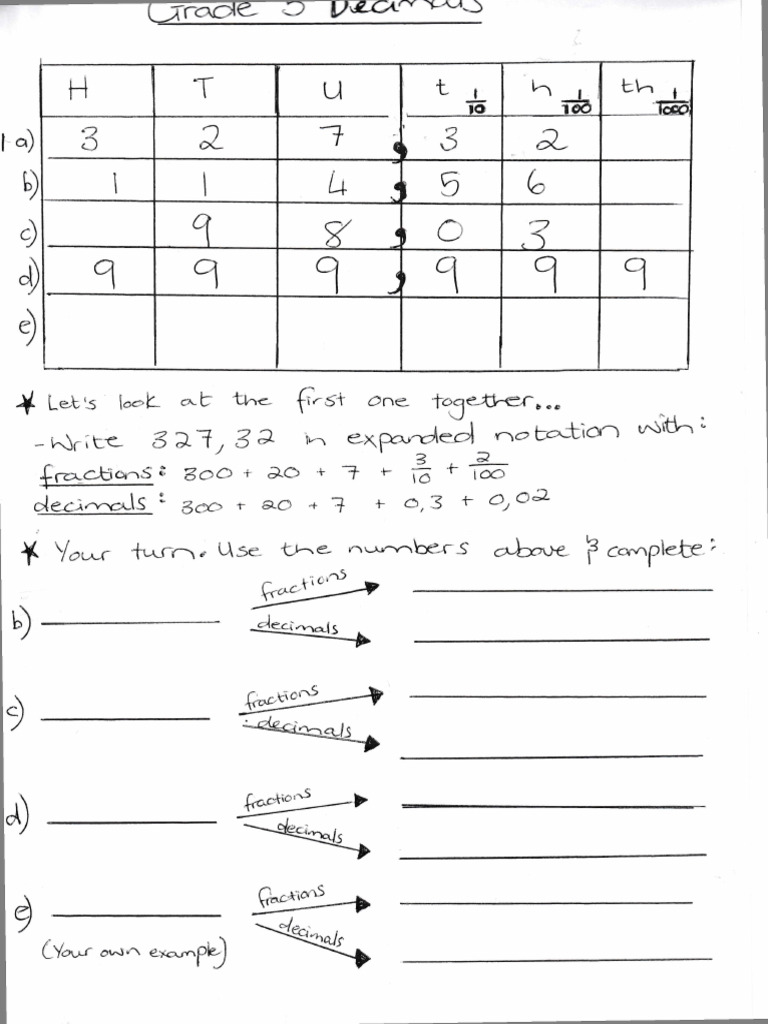 Grade 5 Decimals
H T U t 1/10 h 1/100 th 1/1000
1 a) 3 2 7 , 3 2
b) 1 1 4 , 5 6
c) 9 8 , 0 3
d) 9 9 9 , 9 9 9
e)
★ Let's look at the first one together...
- Write 327,32 in expanded notation with:
fractions: 300 + 20 + 7 + 3/10 + 2/100
decimals: 300 + 20 + 7 + 0,3 + 0,02
★ Your turn. Use the numbers above & complete:
fractions
b)
decimals
fractions
c)
decimals
fractions
d)
decimals
fractions
e)
decimals
(Your own example)